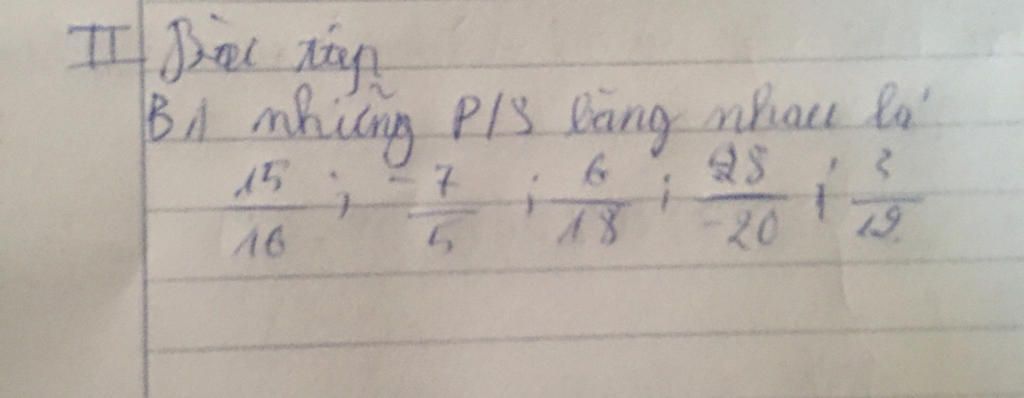 II Bài tập
B1 những P/S bằng nhau là
15/16 ; -7/5 ; 6/18 ; 28/-20 ; 3/12